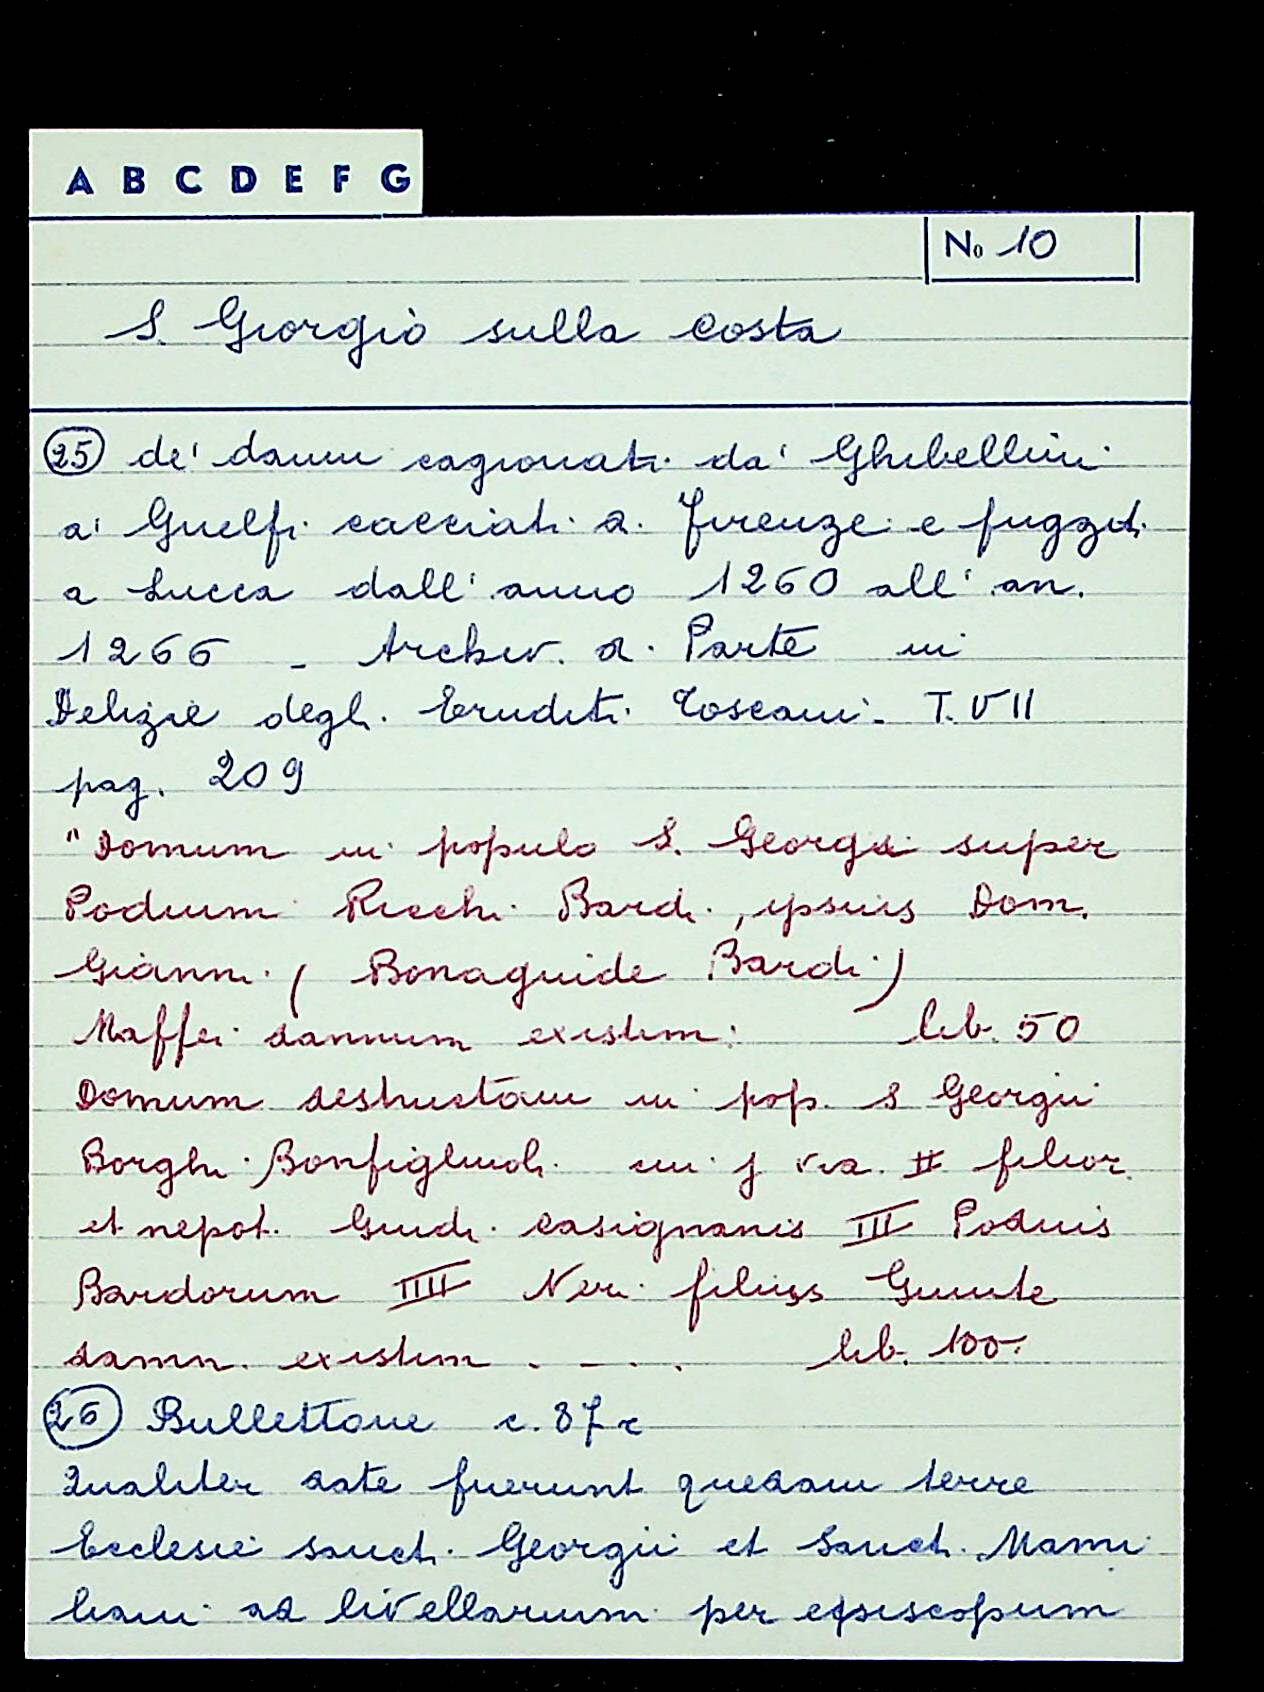 A B C D E F G
No 10
S. Giorgio sulla Costa
25 de' danni cagionati da' Ghibellini
a' Guelfi cacciati di Firenze e fuggiti
a Lucca dall' anno 1260 all' an.
1266 - Archiv. di Parte in
Delizie degli Eruditi Toscani - T. VII
pag. 209
"Domum in populo S. Georgii super
Podium Ricchi Bardi, ipsius Dom.
Gianni ( Bonaguide Bardi )
Maffei dannum existim: lib. 50
Domum destructam in pop. S Georgii
Borghi Bonfigliuoli cui j via II filior.
et nepot. Guidi Casignanis III Podius
Bardorum IIII Neri filius Giunte
damn. existim . - - . lib. 100.
26 Bullettone c. 87 r
Qualiter date fuerunt quedam terre
Ecclesie sancti Georgii et Sancti Mami
liani ad livellarium per episcopum